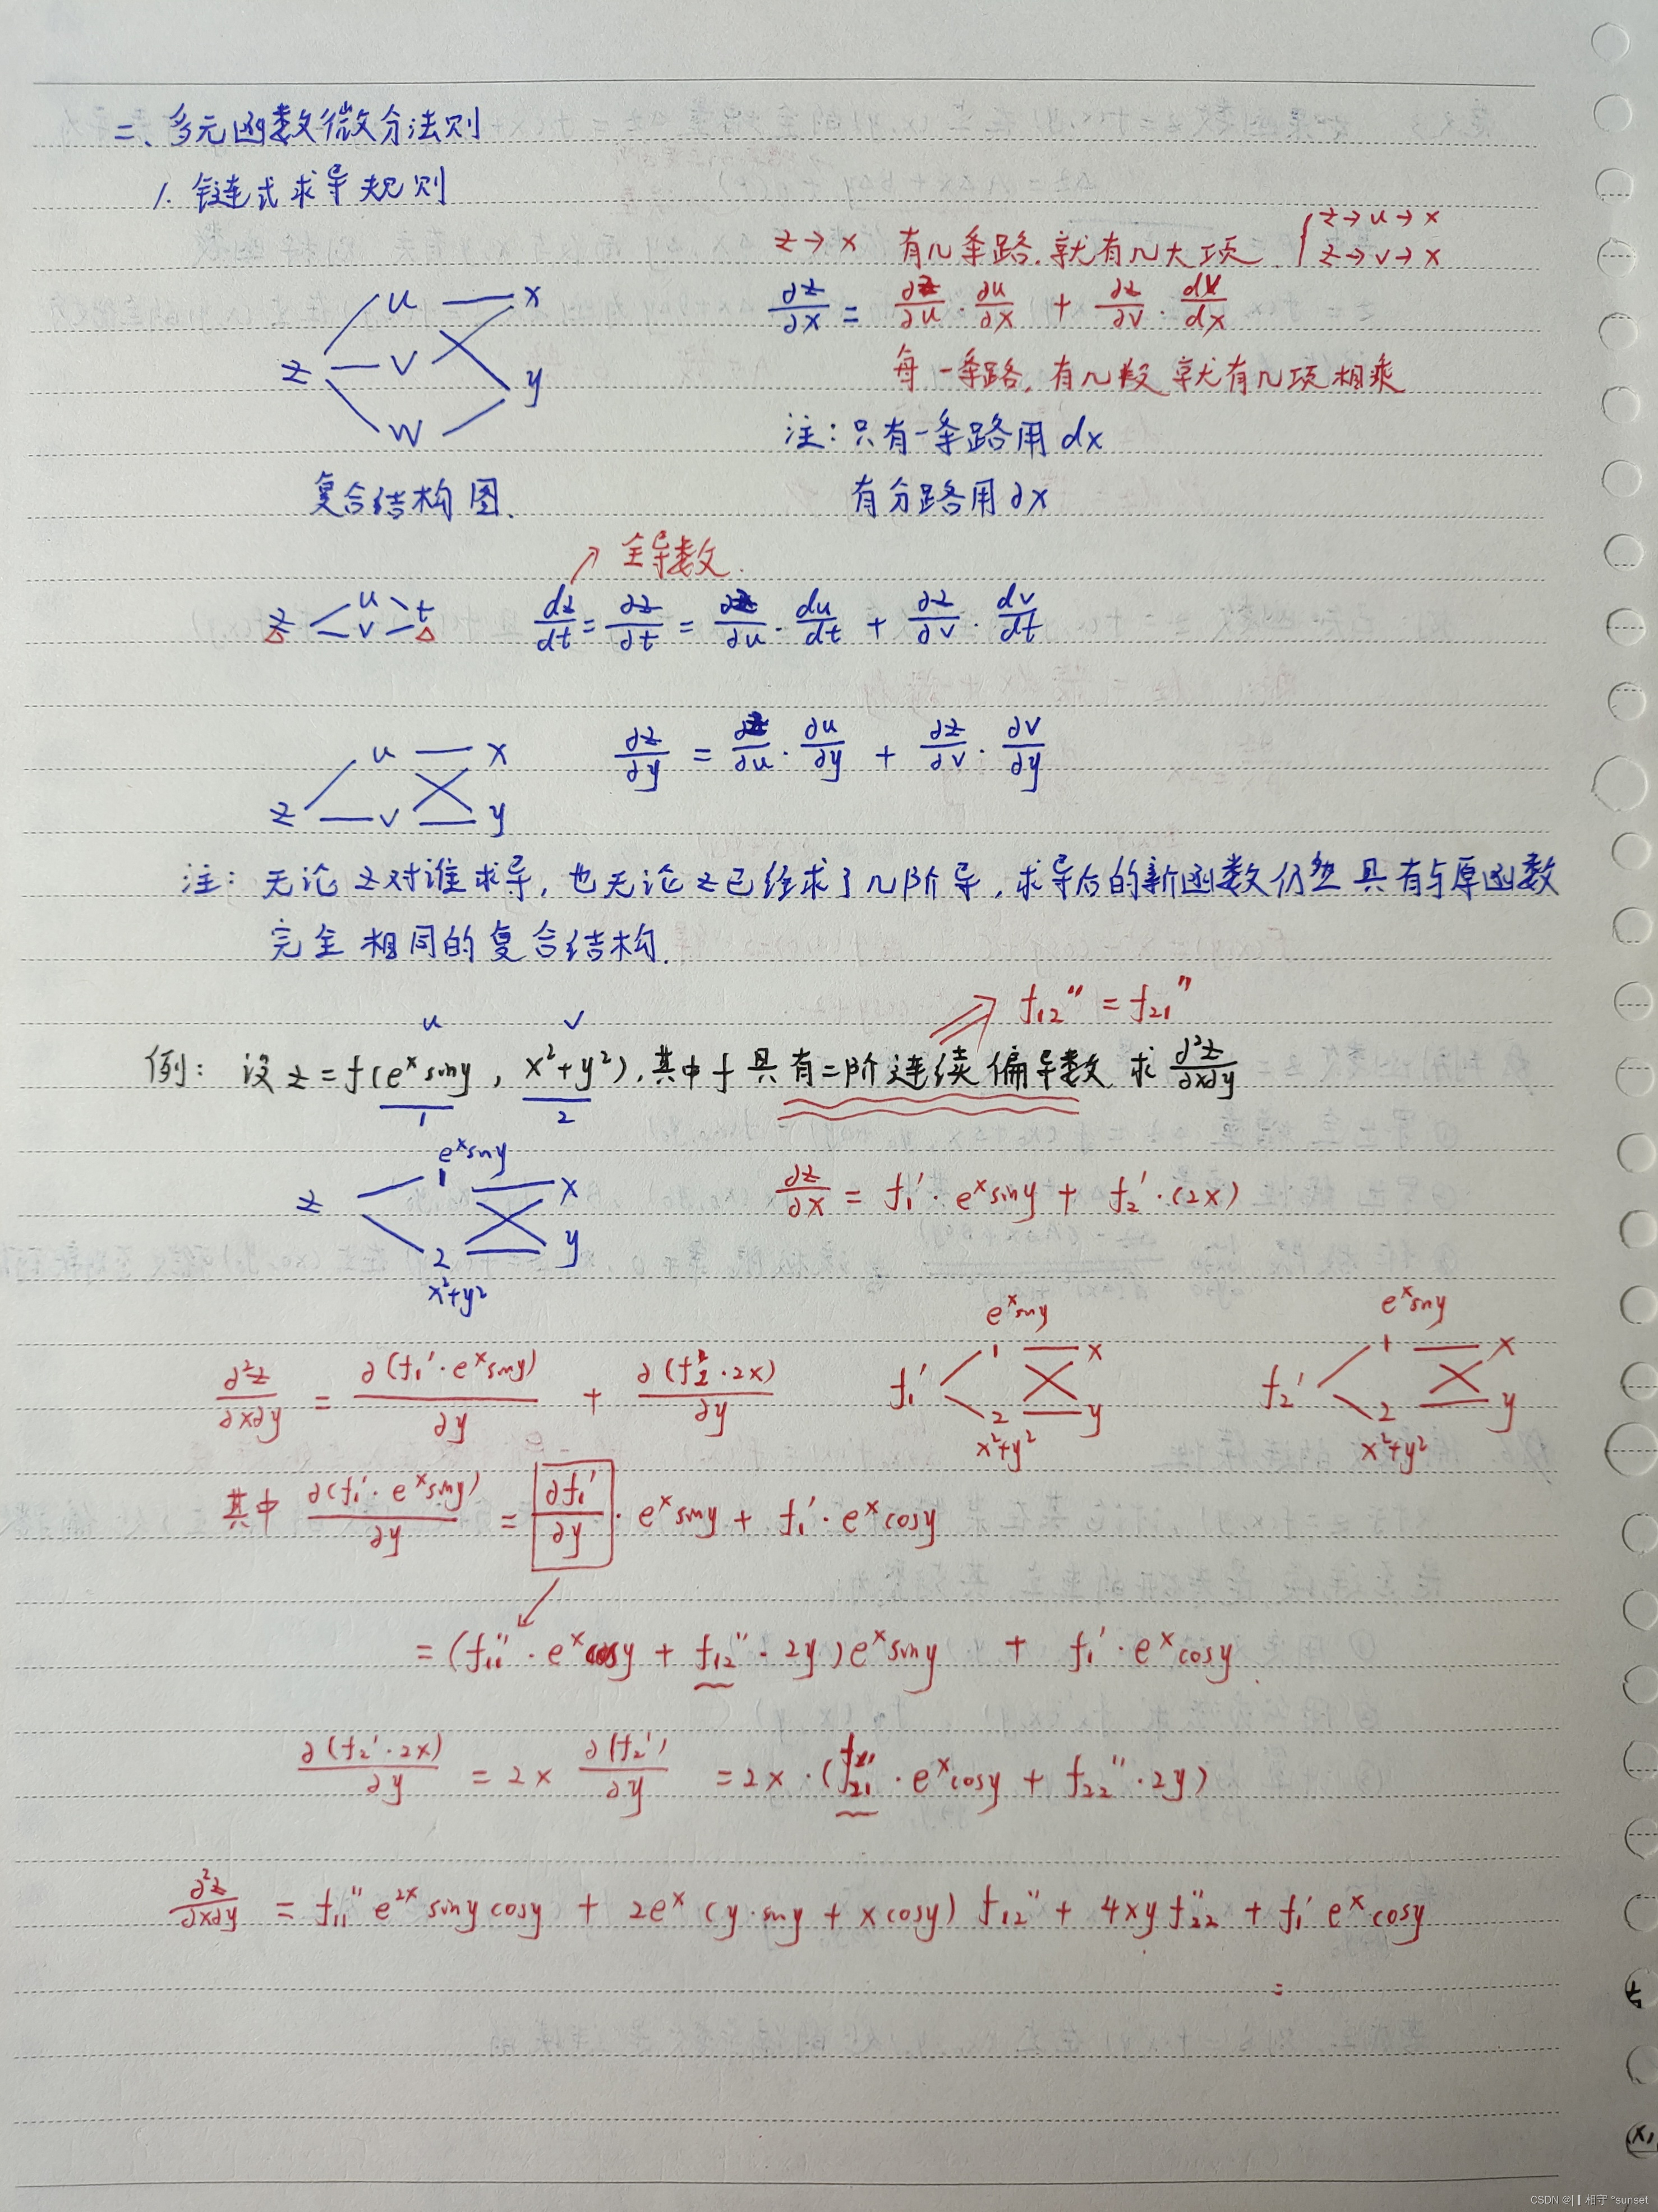 二、多元函数微分法则
1. 链连式求导规则
z→x 有几条路.就有几大项. { z→u→x
z→v→x
∂z/∂x = ∂z/∂u · ∂u/∂x + ∂z/∂v · dv/dx
每一条路,有几段就有几项相乘
z u v w x y
注:只有一条路用dx
复合结构图. 有分路用∂x
全导数.
z u v t dz/dt = ∂z/∂t = ∂z/∂u · du/dt + ∂z/∂v · dv/dt
z u v x y ∂z/∂y = ∂z/∂u · ∂u/∂y + ∂z/∂v · ∂v/∂y
注:无论z对谁求导,也无论z已经求了几阶导,求导后的新函数仍然具有与原函数
完全相同的复合结构.
f₁₂″ = f₂₁″
u v
例:设z=f(eˣsiny, x²+y²),其中f具有二阶连续偏导数.求∂²z/∂x∂y
1 2
z 1 eˣsiny 2 x²+y² x y ∂z/∂x = f₁′·eˣsiny + f₂′·(2x)
∂²z/∂x∂y = ∂(f₁′·eˣsiny)/∂y + ∂(f₂′·2x)/∂y
f₁′ 1 eˣsiny 2 x²+y² x y
f₂′ 1 eˣsiny 2 x²+y² x y
其中 ∂(f₁′·eˣsiny)/∂y = ∂f₁′/∂y · eˣsiny + f₁′·eˣcosy
= (f₁₁″·eˣcosy + f₁₂″·2y)eˣsiny + f₁′·eˣcosy
∂(f₂′·2x)/∂y = 2x ∂(f₂′)/∂y = 2x·(f₂₁″·eˣcosy + f₂₂″·2y)
∂²z/∂x∂y = f₁₁″e²ˣsinycosy + 2eˣ(y·siny + xcosy)f₁₂″ + 4xyf₂₂″ + f₁′eˣcosy
CSDN @|▎相守 °sunset